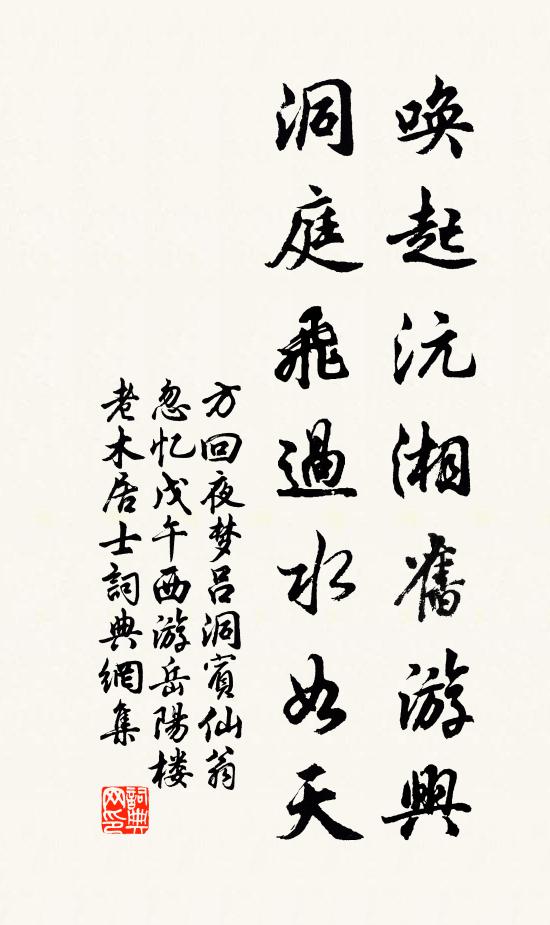 唤起沅湘舊游興
洞庭飛過水如天
方回夜梦吕洞賓仙翁
忽忆戊午西游岳陽楼
老木居士詞典網集
詞典网印